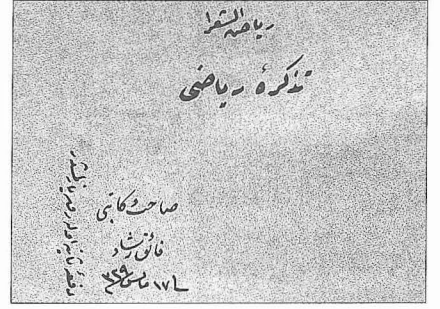 رياض الشعرا
تذكرهٔ رياضى
صاحب و كاتبى
فائق رشاد
١٧ مارس ٣٢٩